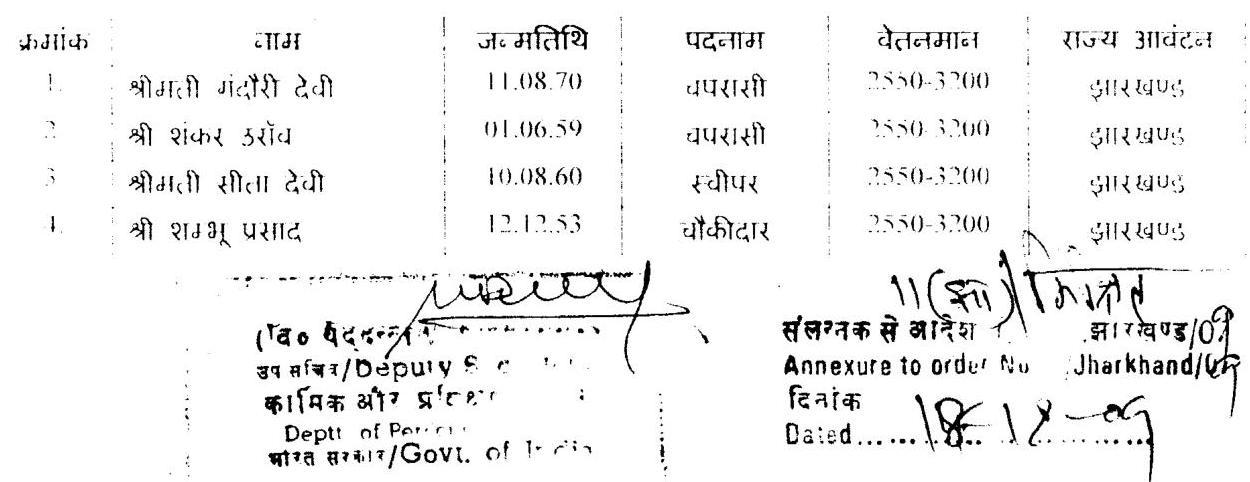 क्रमांक नाम जन्मतिथि पदनाम वेतनमान राज्य आवंटन
1. श्रीमती गंदौरी देवी 11.08.70 चपरासी 2550-3200 झारखण्ड
2 श्री शंकर उरॉव 01.06.59 चपरासी 2550-3200 झारखण्ड
3 श्रीमती सीता देवी 10.08.60 स्वीपर 2550-3200 झारखण्ड
4. श्री शम्भू प्रसाद 12.12.53 चौकीदार 2550-3200 झारखण्ड
11(झा)
संलग्नक से आदेश झारखण्ड/09
उप सचिव/Deputy
Annexure to order No Jharkhand/09
कार्मिक और
दिनांक
Deptt of
Dated 18-12-09
भारत सरकार/Govt. of India